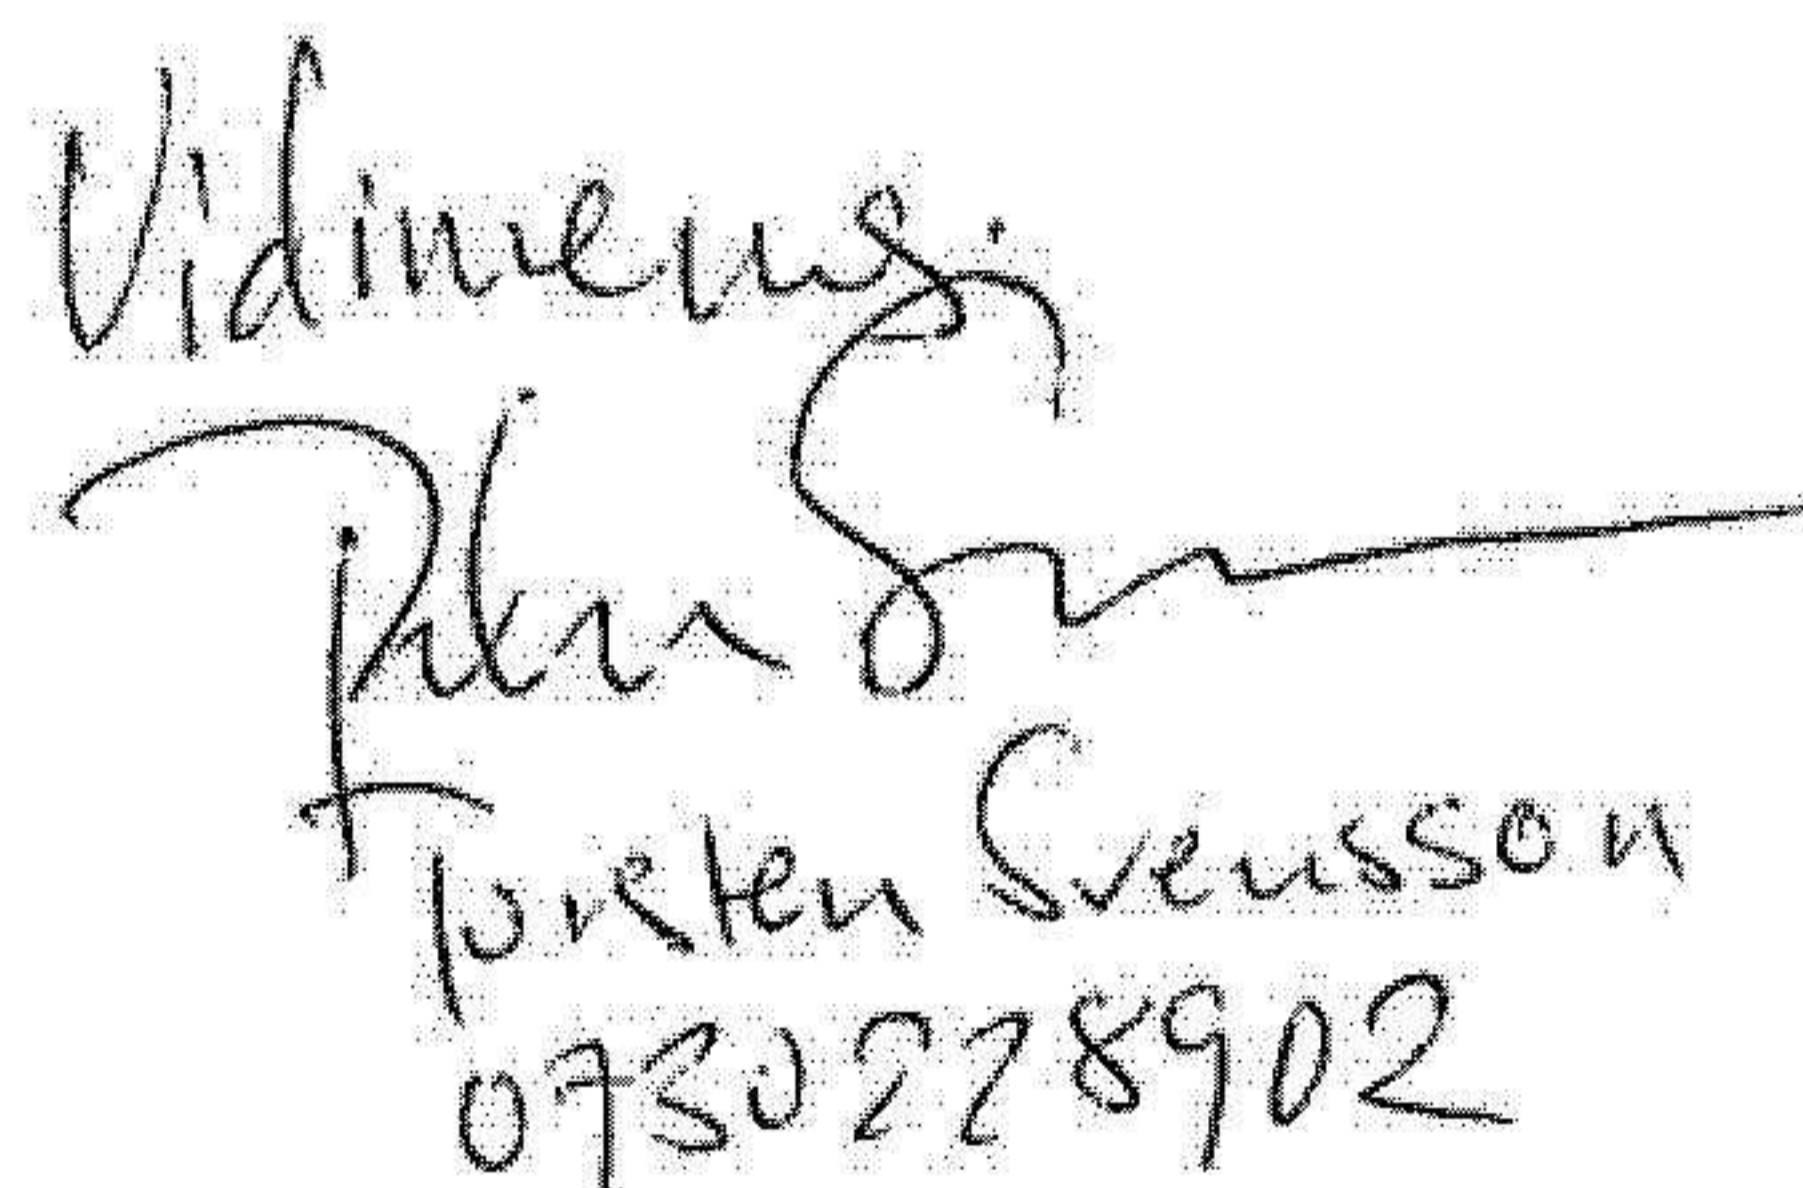 Vidimeras:
Torsten Svensson
0730228902